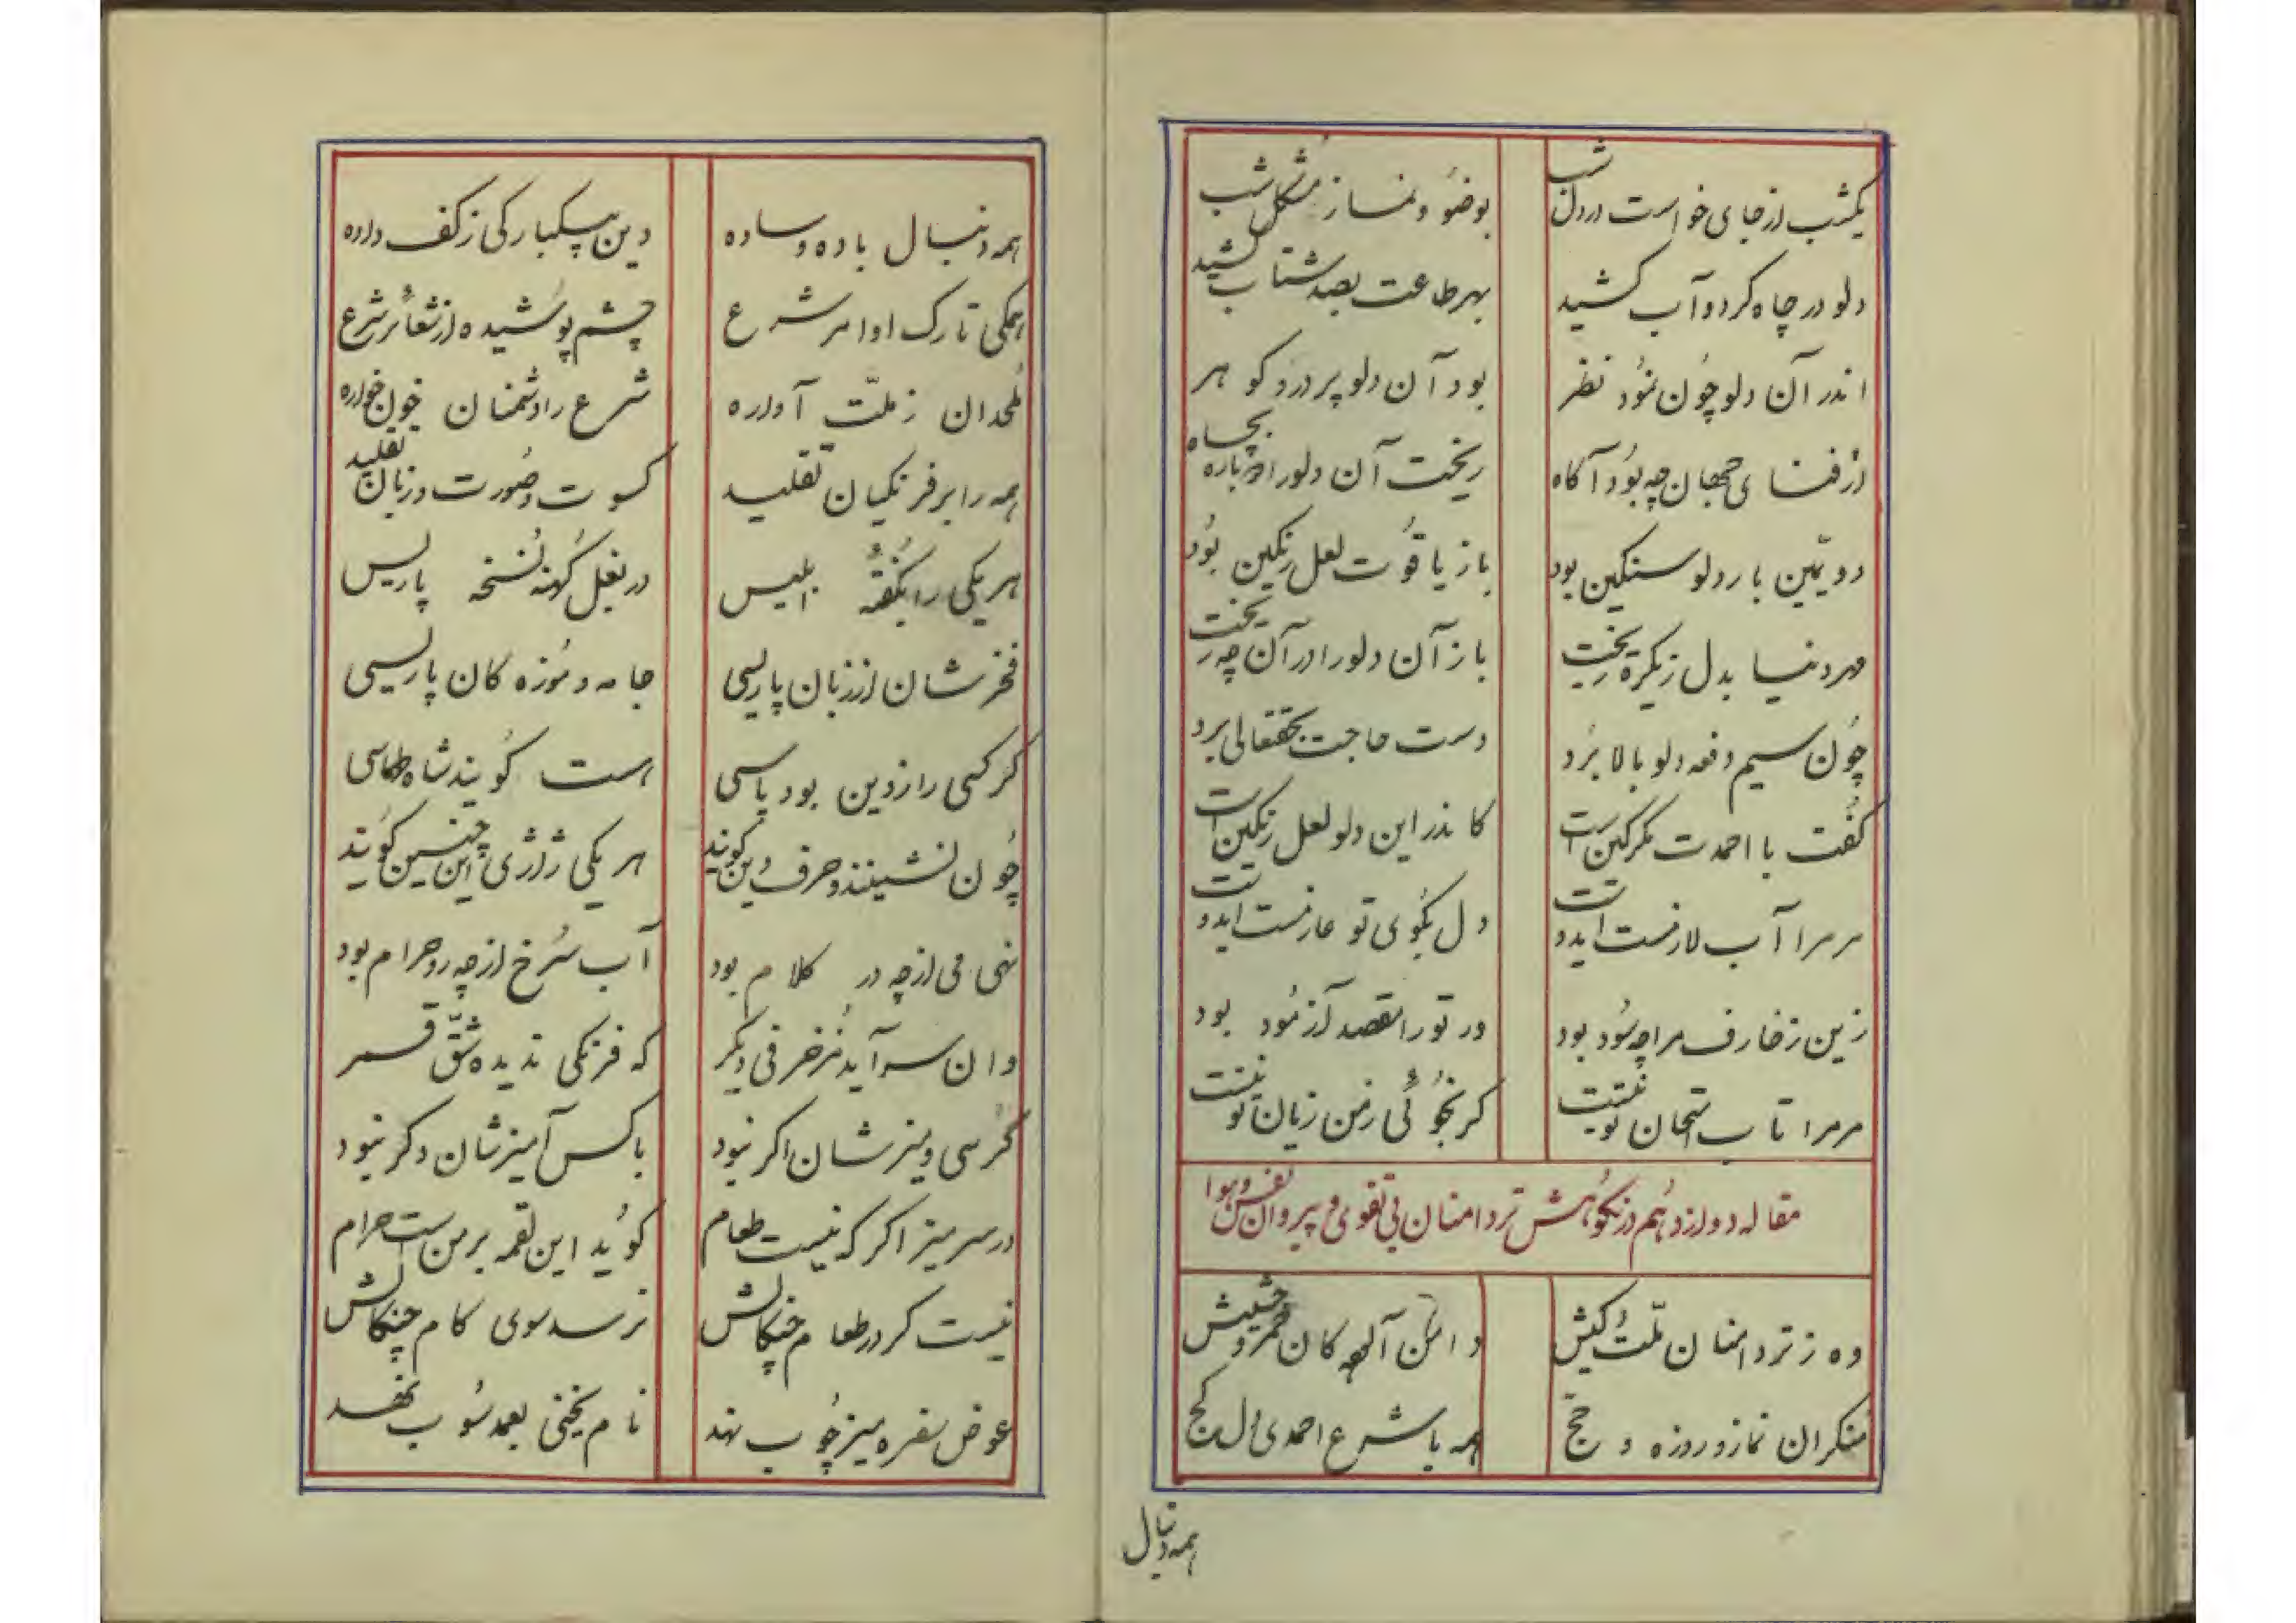 یکشب از جای خواست در دل شب
بوضو و نماز مشکل شب
دلو در چاه کرد و آب کشید
بهر طاعت بصد شتاب کشید
اندر آن دلو چون نمود نظر
بود آن دلو پر در و گوهر
از فنای جهان چه بود آگاه
ریخت آن دلو را دوباره بچاه
دویمین بار دلو سنگین بود
باز یاقوت لعل رنگین بود
مهر دنیا بدل زیکره ریخت
باز آن دلو را در آن چه ریخت
چون سیم دفعه دلو بالا برد
دست حاجت بحقتعالی برد
گفت با احمدت مگر کین است
کاندر این دلو لعل رنگین است
مر مرا آب لازمست ایدوست
دل بگوی تو عازمست ایدوست
زین زخارف مرا چه سود بود
ور تو را قصد آزمود بود
مر مرا تاب امتحان تو نیست
گر نجوئی ز من زیان تو نیست
مقاله دوازدهم در نکوهش تردامنان بی تقوی و پیروان نفس و هوا
وه ز تردامنان ملت کیش
دامن آلوده کان خمر و حشیش
منکران نماز و روزه و حج
همه با شرع احمدی دل کج
همه دنبال
همه دنبال باده و ساده
دین بیکبارکی ز کف داده
همکی تارک اوامر شرع
چشم پوشیده از شعائر شرع
ملحدان ز ملت آواره
شرع را دشمنان خون خواره
همه را بر فرنکیان تقلید
کسوت و صورت و زبان تقلید
هر یکی را بگفته ابلیس
در بغل کهنه نسخه پاریس
فخرشان از زبان پاریسی
جامه و موزه کان پاریسی
گر کسی را ز دین بود پاسی
است گویند شاه طهماسی
چون نشینند و حرف دین گویند
هر یکی ژاژی این چنین گویند
نهی می از چه در کلام بود
آب سرخ از چه رو حرام بود
وان سر آید مزخرفی دیگر
که فرنکی ندیده شق قمر
کرسی و میزشان اگر نبود
با کس آمیزشان دگر نبود
در سر میز اگر که نیست طعام
گوید این لقمه بر من است حرام
نیست گر در طعام چنگالش
نرسد سوی کام چنگالش
عوض سفره میز چوب نهد
نام یخنی بعمد سوپ نهد